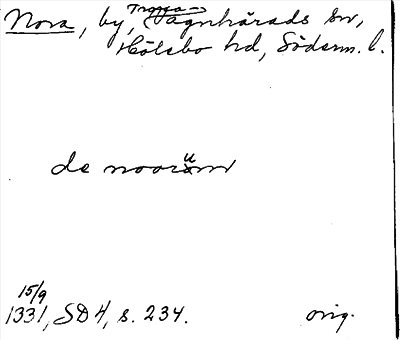 Nora, by, Trosa-Vagnhärads sn,
Hölebo hd, Söderm. l.
de noorum
15/9
1331, SD 4, s. 234. orig.